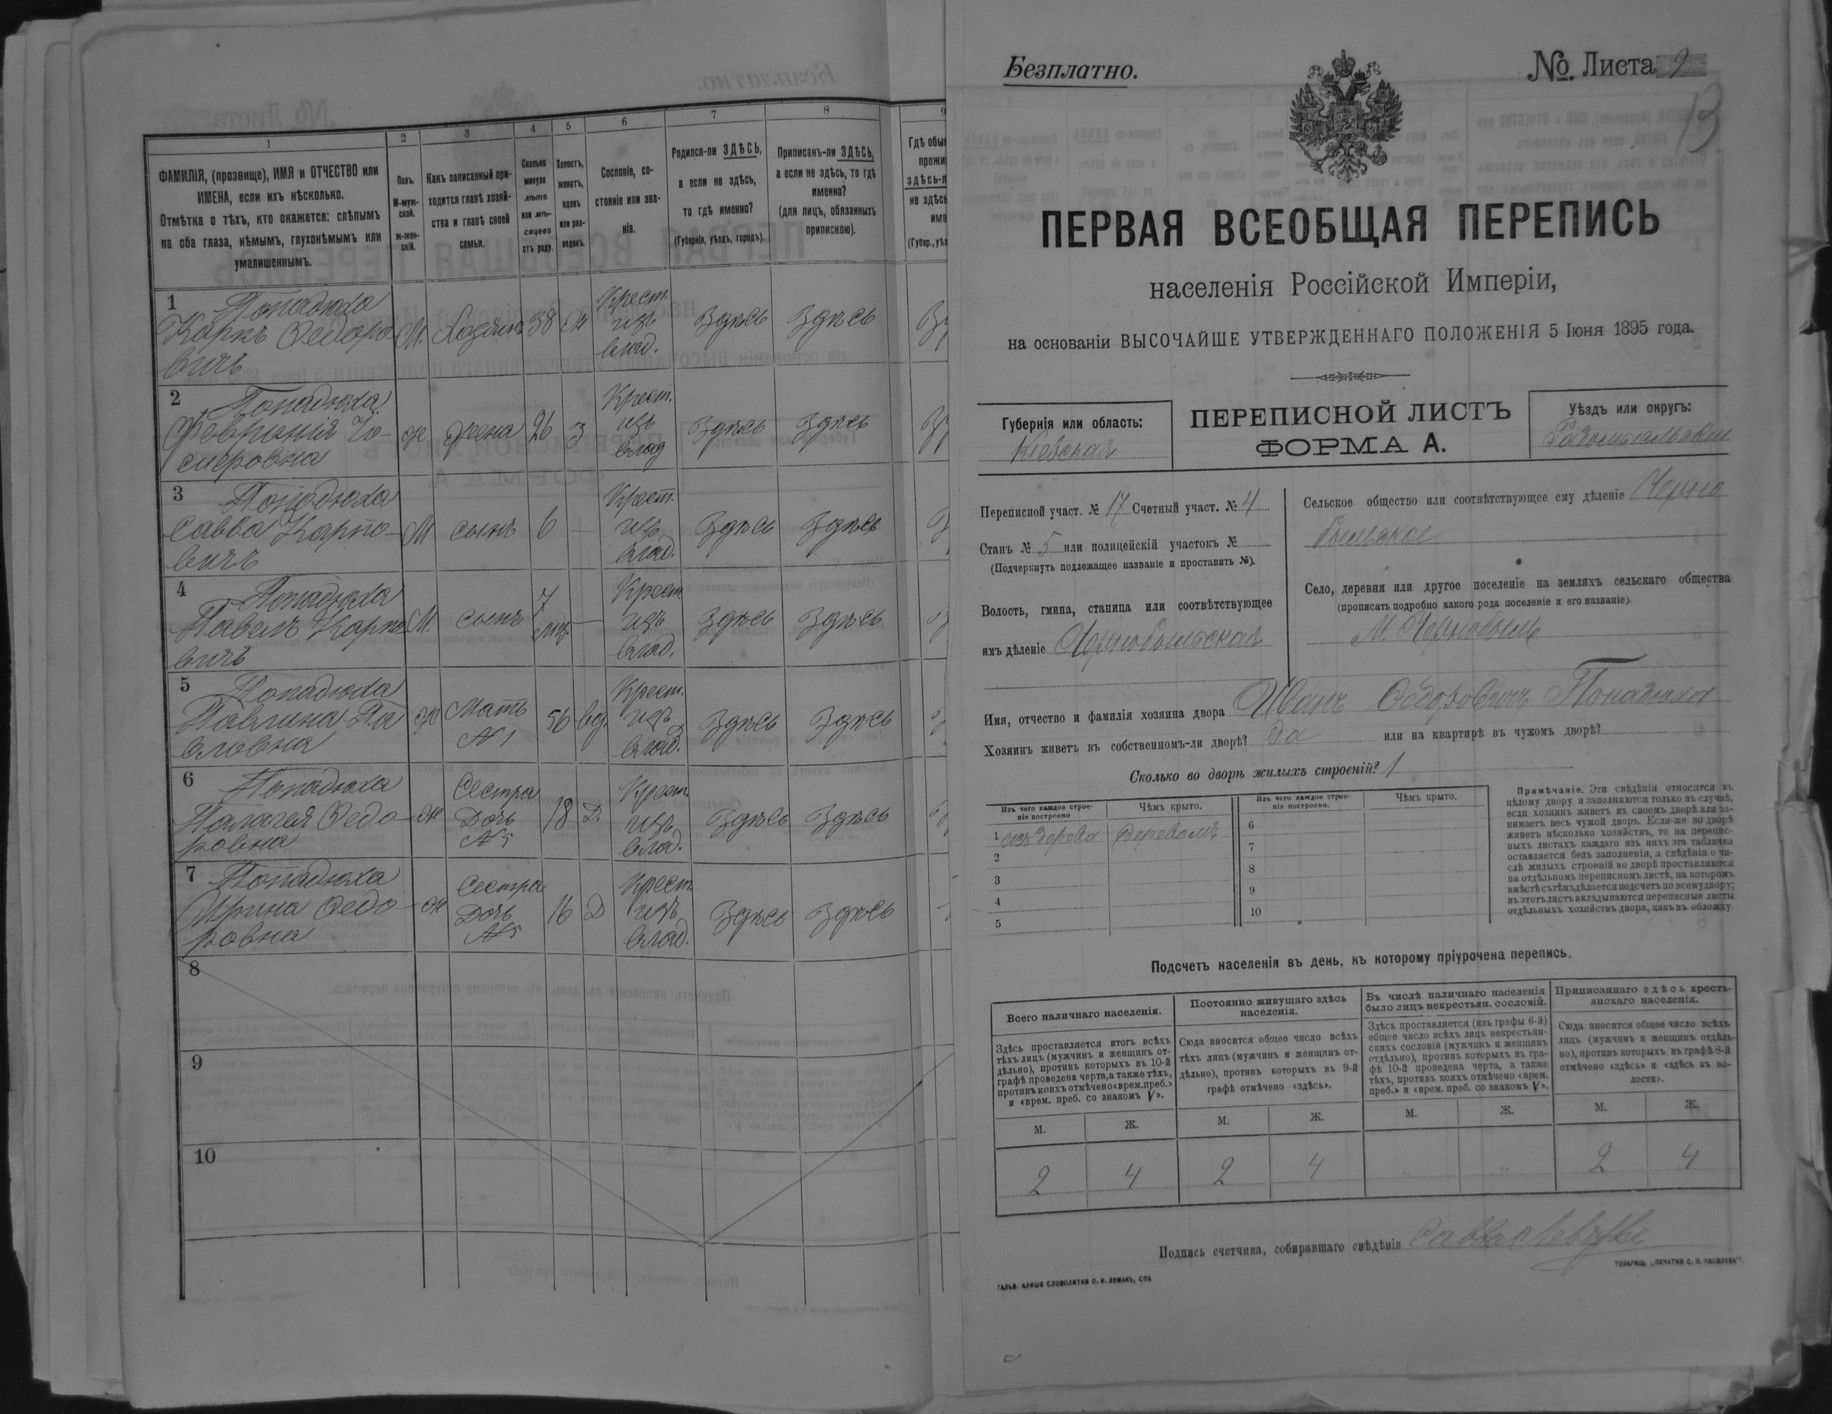 1
2
3
4
5
6
7
8
9
ФАМИЛІЯ, (прозвище), ИМЯ и ОТЧЕСТВО или
ИМЕНА, если ихъ нѣсколько.
Отмѣтка о тѣхъ, кто окажется: слѣпымъ
на оба глаза, нѣмымъ, глухонѣмымъ или
умалишеннымъ.
Полъ.
М-муж-
ской.
ж-жен-
скій.
Какъ записанный при-
ходится главѣ хозяй-
ства и главѣ своей
семьи.
Сколько
минуло
лѣтъ
или мѣ-
сяцевъ
отъ роду.
Холостъ,
женатъ,
вдовъ
или раз-
веденъ.
Сословіе, со-
стояніе или зва-
ніе.
Родился-ли ЗДѢСЬ,
а если не здѣсь,
то гдѣ именно?
(Губернія, уѣздъ, городъ).
Приписанъ-ли ЗДѢСЬ,
а если не здѣсь, то гдѣ
именно?
(для лицъ, обязанныхъ
припискою).
Гдѣ обы
прожи
здѣсь-л
не здѣсь
име
(Губер., уѣз
1 Попадюха
Карпъ Ѳедоро
вичъ
М. Хозяинъ 38 Ж Крест. изъ влад. Здѣсь Здѣсь
2 Попадюха
Февронія
ж жена 26 З Крест. изъ влад Здѣсь Здѣсь
3 Попадюха
Савва Карпо-
вичъ
М сынъ 6 — Крест. изъ влад. Здѣсь Здѣсь
4 Попадюха
Павелъ Карпо
вичъ
М. сынъ 7 мц. — Крест. изъ влад. Здѣсь Здѣсь
5 Попадюха
Павлина Па
вловна
ж Мать №1 56 вд. Крест. изъ влад. Здѣсь Здѣсь
6 Попадюха
Палагея Ѳедо-
ровна
ж Сестра Дочь №5 18 Д. Крест. изъ влад. Здѣсь Здѣсь
7 Попадюха
Ирина Ѳедо-
ровна
ж Сестра Дочь №5 16 Д Крест. изъ влад. Здѣсь Здѣсь
8
9
10
Безплатно.
№. Листа 2
13
ПЕРВАЯ ВСЕОБЩАЯ ПЕРЕПИСЬ
населенія Россійской Имперіи,
на основаніи ВЫСОЧАЙШЕ УТВЕРЖДЕННАГО ПОЛОЖЕНІЯ 5 Іюня 1895 года.
Губернія или область:
Кіевская
ПЕРЕПИСНОЙ ЛИСТЪ
ФОРМА А.
Уѣздъ или округъ:
Радомысльскій
Переписной участ. № 17 Счетный участ. № 4
Станъ № 5 или полицейскій участокъ №
(Подчеркнуть подлежащее названіе и проставить №).
Волость, гмина, станица или соотвѣтствующее
имъ дѣленіе Чернобыльская
Сельское общество или соотвѣтствующее ему дѣленіе Черно
быльское
Село, деревня или другое поселеніе на земляхъ сельскаго общества
(прописать подробно какого рода поселеніе и его названіе).
М. Чернобыль
Имя, отчество и фамилія хозяина двора Иванъ Ѳедоровичъ Попадюха
Хозяинъ живетъ въ собственномъ-ли дворѣ? да или на квартирѣ въ чужомъ дворѣ?
Сколько во дворѣ жилыхъ строеній? 1
Изъ чего каждое строе-
ніе построено
Чѣмъ крыто.
Изъ чего каждое строе-
ніе построено.
Чѣмъ крыто.
1 изъ дерева Деревомъ
2
3
4
5
6
7
8
9
10
Примѣчаніе. Эти свѣдѣнія относятся къ
цѣлому двору и заполняются только въ случаѣ,
если хозяинъ живетъ въ своемъ дворѣ или за-
нимаетъ весь чужой дворъ. Если-же во дворѣ
живетъ нѣсколько хозяйствъ, то на перепис-
ныхъ листахъ каждаго изъ нихъ эта табличка
оставляется безъ заполненія, а свѣдѣнія о чи-
слѣ жилыхъ строеній во дворѣ проставляются
на отдѣльномъ переписномъ листѣ, на которомъ
вмѣстѣ съ тѣмъ дѣлается подсчетъ по всему двору;
въ этотъ листъ вкладываются переписные листы
отдѣльныхъ хозяйствъ двора, какъ въ обложку.
Подсчетъ населенія въ день, къ которому пріурочена перепись.
Всего наличнаго населенія.
Постоянно живущаго здѣсь
населенія.
Въ числѣ наличнаго населенія
было лицъ некрестьян. сословій.
Приписаннаго здѣсь кресть-
янскаго населенія.
Здѣсь проставляется итогъ всѣхъ
тѣхъ лицъ (мужчинъ и женщинъ от-
дѣльно), противъ которыхъ въ 10-й
графѣ проведена черта, а также тѣхъ,
противъ коихъ отмѣчено «врем. преб.»
и «врем. преб. со знакомъ V».
Сюда вносится общее число всѣхъ
тѣхъ лицъ (мужчинъ и женщинъ от-
дѣльно), противъ которыхъ въ 9-й
графѣ отмѣчено «здѣсь».
Здѣсь проставляется (изъ графы 6-й)
общее число всѣхъ лицъ некрестьян-
скихъ сословій (мужчинъ и женщинъ
отдѣльно), противъ которыхъ въ гра-
фѣ 10-й проведена черта, а также
тѣхъ, противъ коихъ отмѣчено «врем.
преб.» и «врем. преб. со знакомъ V».
Сюда вносится общее число всѣхъ
лицъ (мужчинъ и женщинъ отдѣль-
но), противъ которыхъ въ графѣ 8-й
отмѣчено «здѣсь» и «здѣсь въ во-
лости».
М. Ж. М. Ж. М. Ж. М. Ж.
2 4 2 4 2 4
Подпись счетчика, собиравшаго свѣдѣнія
ГАЛЬВ. КЛИШЕ СЛОВОЛИТНИ О. И. ЛЕМАНЪ, СПБ
ТОВАРИЩ. „ПЕЧАТНЯ С. П. ЯКОВЛЕВА“.